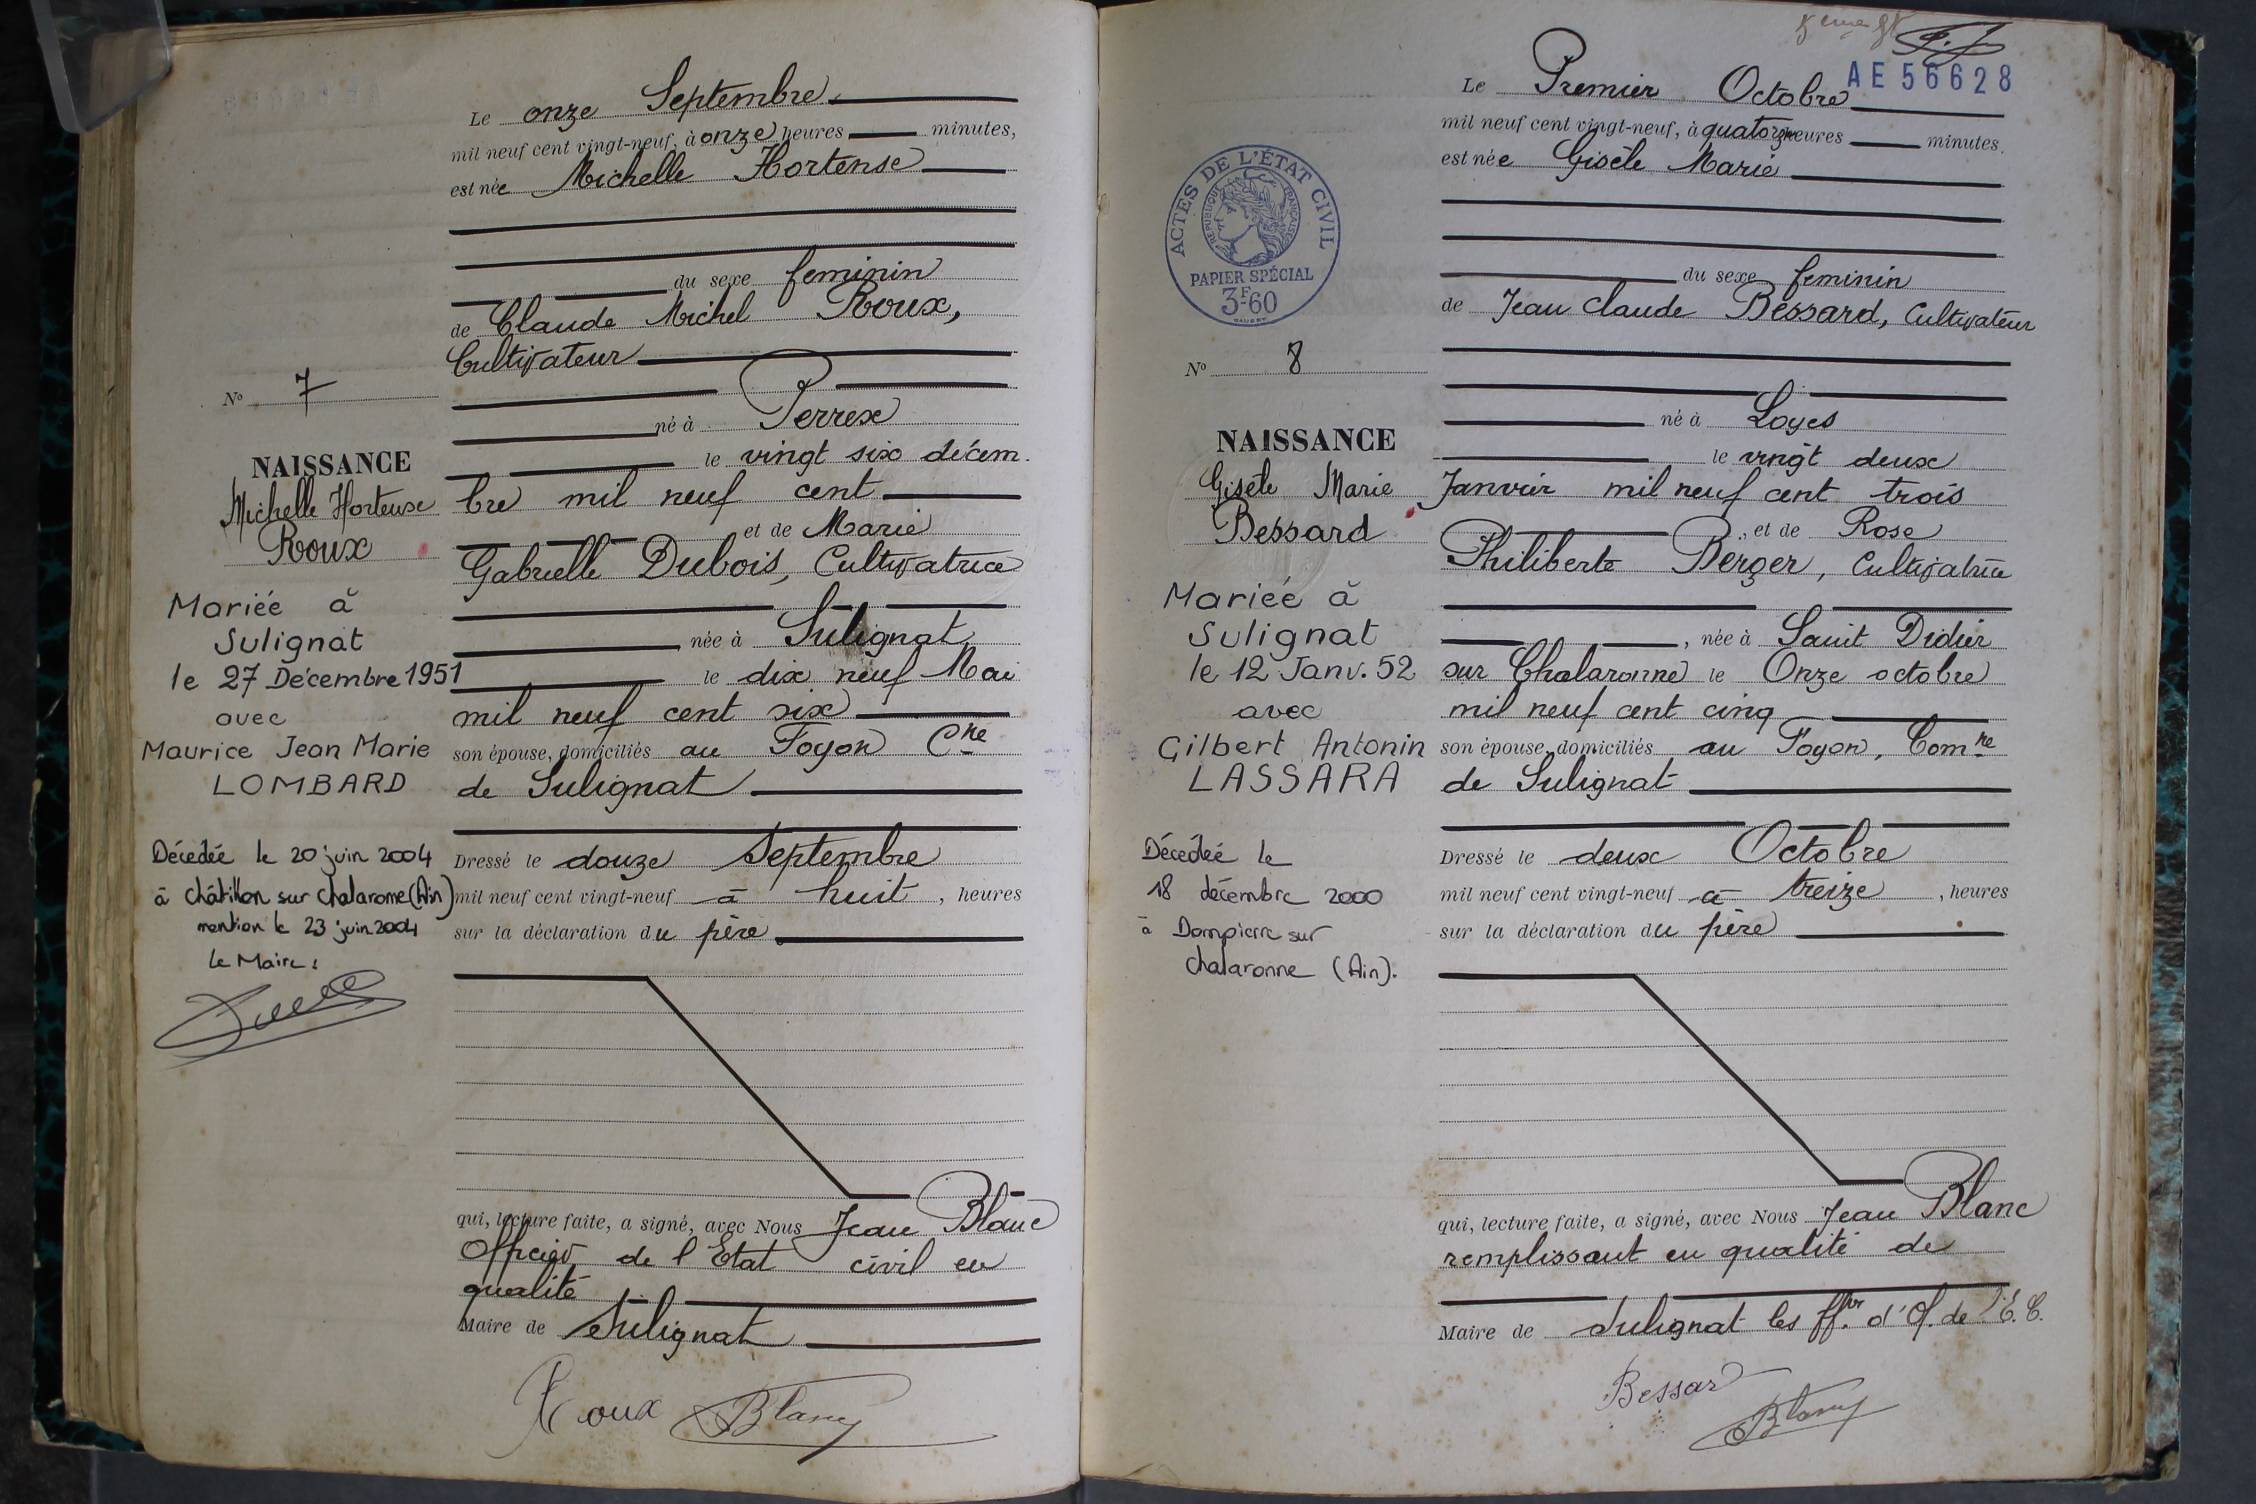 Le onze Septembre
mil neuf cent vingt-neuf, à onze heures minutes,
est née Michelle Hortense
du sexe feminin
de Claude Michel Roux,
Cultivateur
né à Perrex
le vingt six décem
bre mil neuf cent
et de Marie
Gabrielle Dubois, Cultivatrice
née à Sulignat
le dix neuf Mai
mil neuf cent six
son épouse, domiciliés au Foyon Cne
de Sulignat
Dressé le douze Septembre
mil neuf cent vingt-neuf à huit, heures
sur la déclaration du père
qui, lecture faite, a signé, avec Nous Jean Blanc
Officier de l'Etat civil en
qualité
Maire de Sulignat
Roux Blanc
No 7
NAISSANCE
Michelle Hortense
Roux
Mariée à
Sulignat
le 27 Décembre 1951
avec
Maurice Jean Marie
LOMBARD
Décédée le 20 juin 2004
à châtillon sur chalaronne (Ain)
mention le 23 juin 2004
Le Maire :
AE 56628
Le Premier Octobre
mil neuf cent vingt-neuf, à quatorze heures minutes.
est née Gisèle Marie
du sexe feminin
de Jean Claude Bessard, Cultivateur
né à Loyes
le vingt deux
Janvier mil neuf cent trois
et de Rose
Philiberte Berger, Cultivatrice
, née à Saint Didier
sur Chalaronne le Onze octobre
mil neuf cent cinq
son épouse, domiciliés au Foyon, Comne
de Sulignat
Dressé le deux Octobre
mil neuf cent vingt-neuf à treize, heures
sur la déclaration du père
qui, lecture faite, a signé, avec Nous Jean Blanc
remplissant en qualité de
Maire de Sulignat les ffor d'Of. de l'E. C.
Bessard
Blanc
ACTES DE L'ÉTAT CIVIL
RÉPUBLIQUE FRANÇAISE
PAPIER SPÉCIAL
3F60
No 8
NAISSANCE
Gisèle Marie
Bessard
Mariée à
Sulignat
le 12 Janv. 52
avec
Gilbert Antonin
LASSARA
Décédée le
18 décembre 2000
à Dompierre sur
chalaronne (Ain).